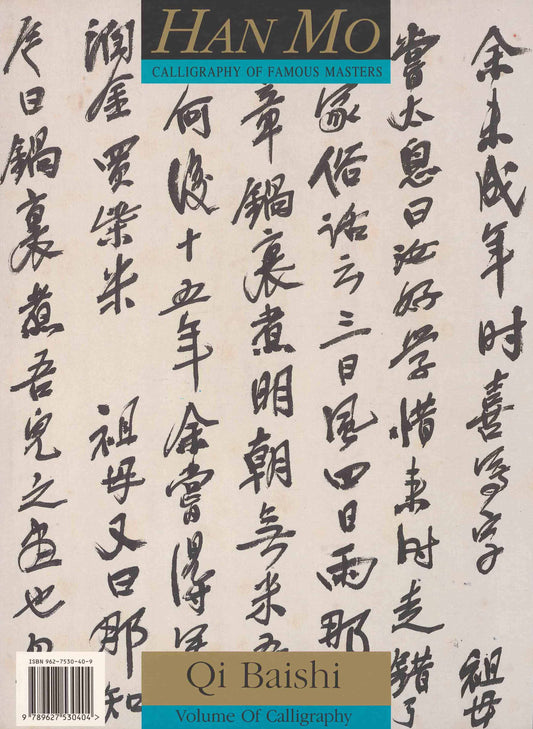 HAN MO
CALLIGRAPHY OF FAMOUS MASTERS
余未成年时喜寫字 祖母
嘗太息曰汝好学惜来时走錯了
家俗話云三日風四日雨那
章鍋裏煮明朝無米吾
何後十五年余嘗得
潤金買柴米 祖母又曰那知
今日鍋裏煮吾兒之畫也
ISBN 962-7530-40-9
9 789627 530404 >
Qi Baishi
Volume Of Calligraphy